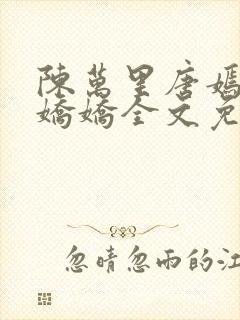 陳萬里唐嫣
嬌嬌全文免
忽晴忽雨的江